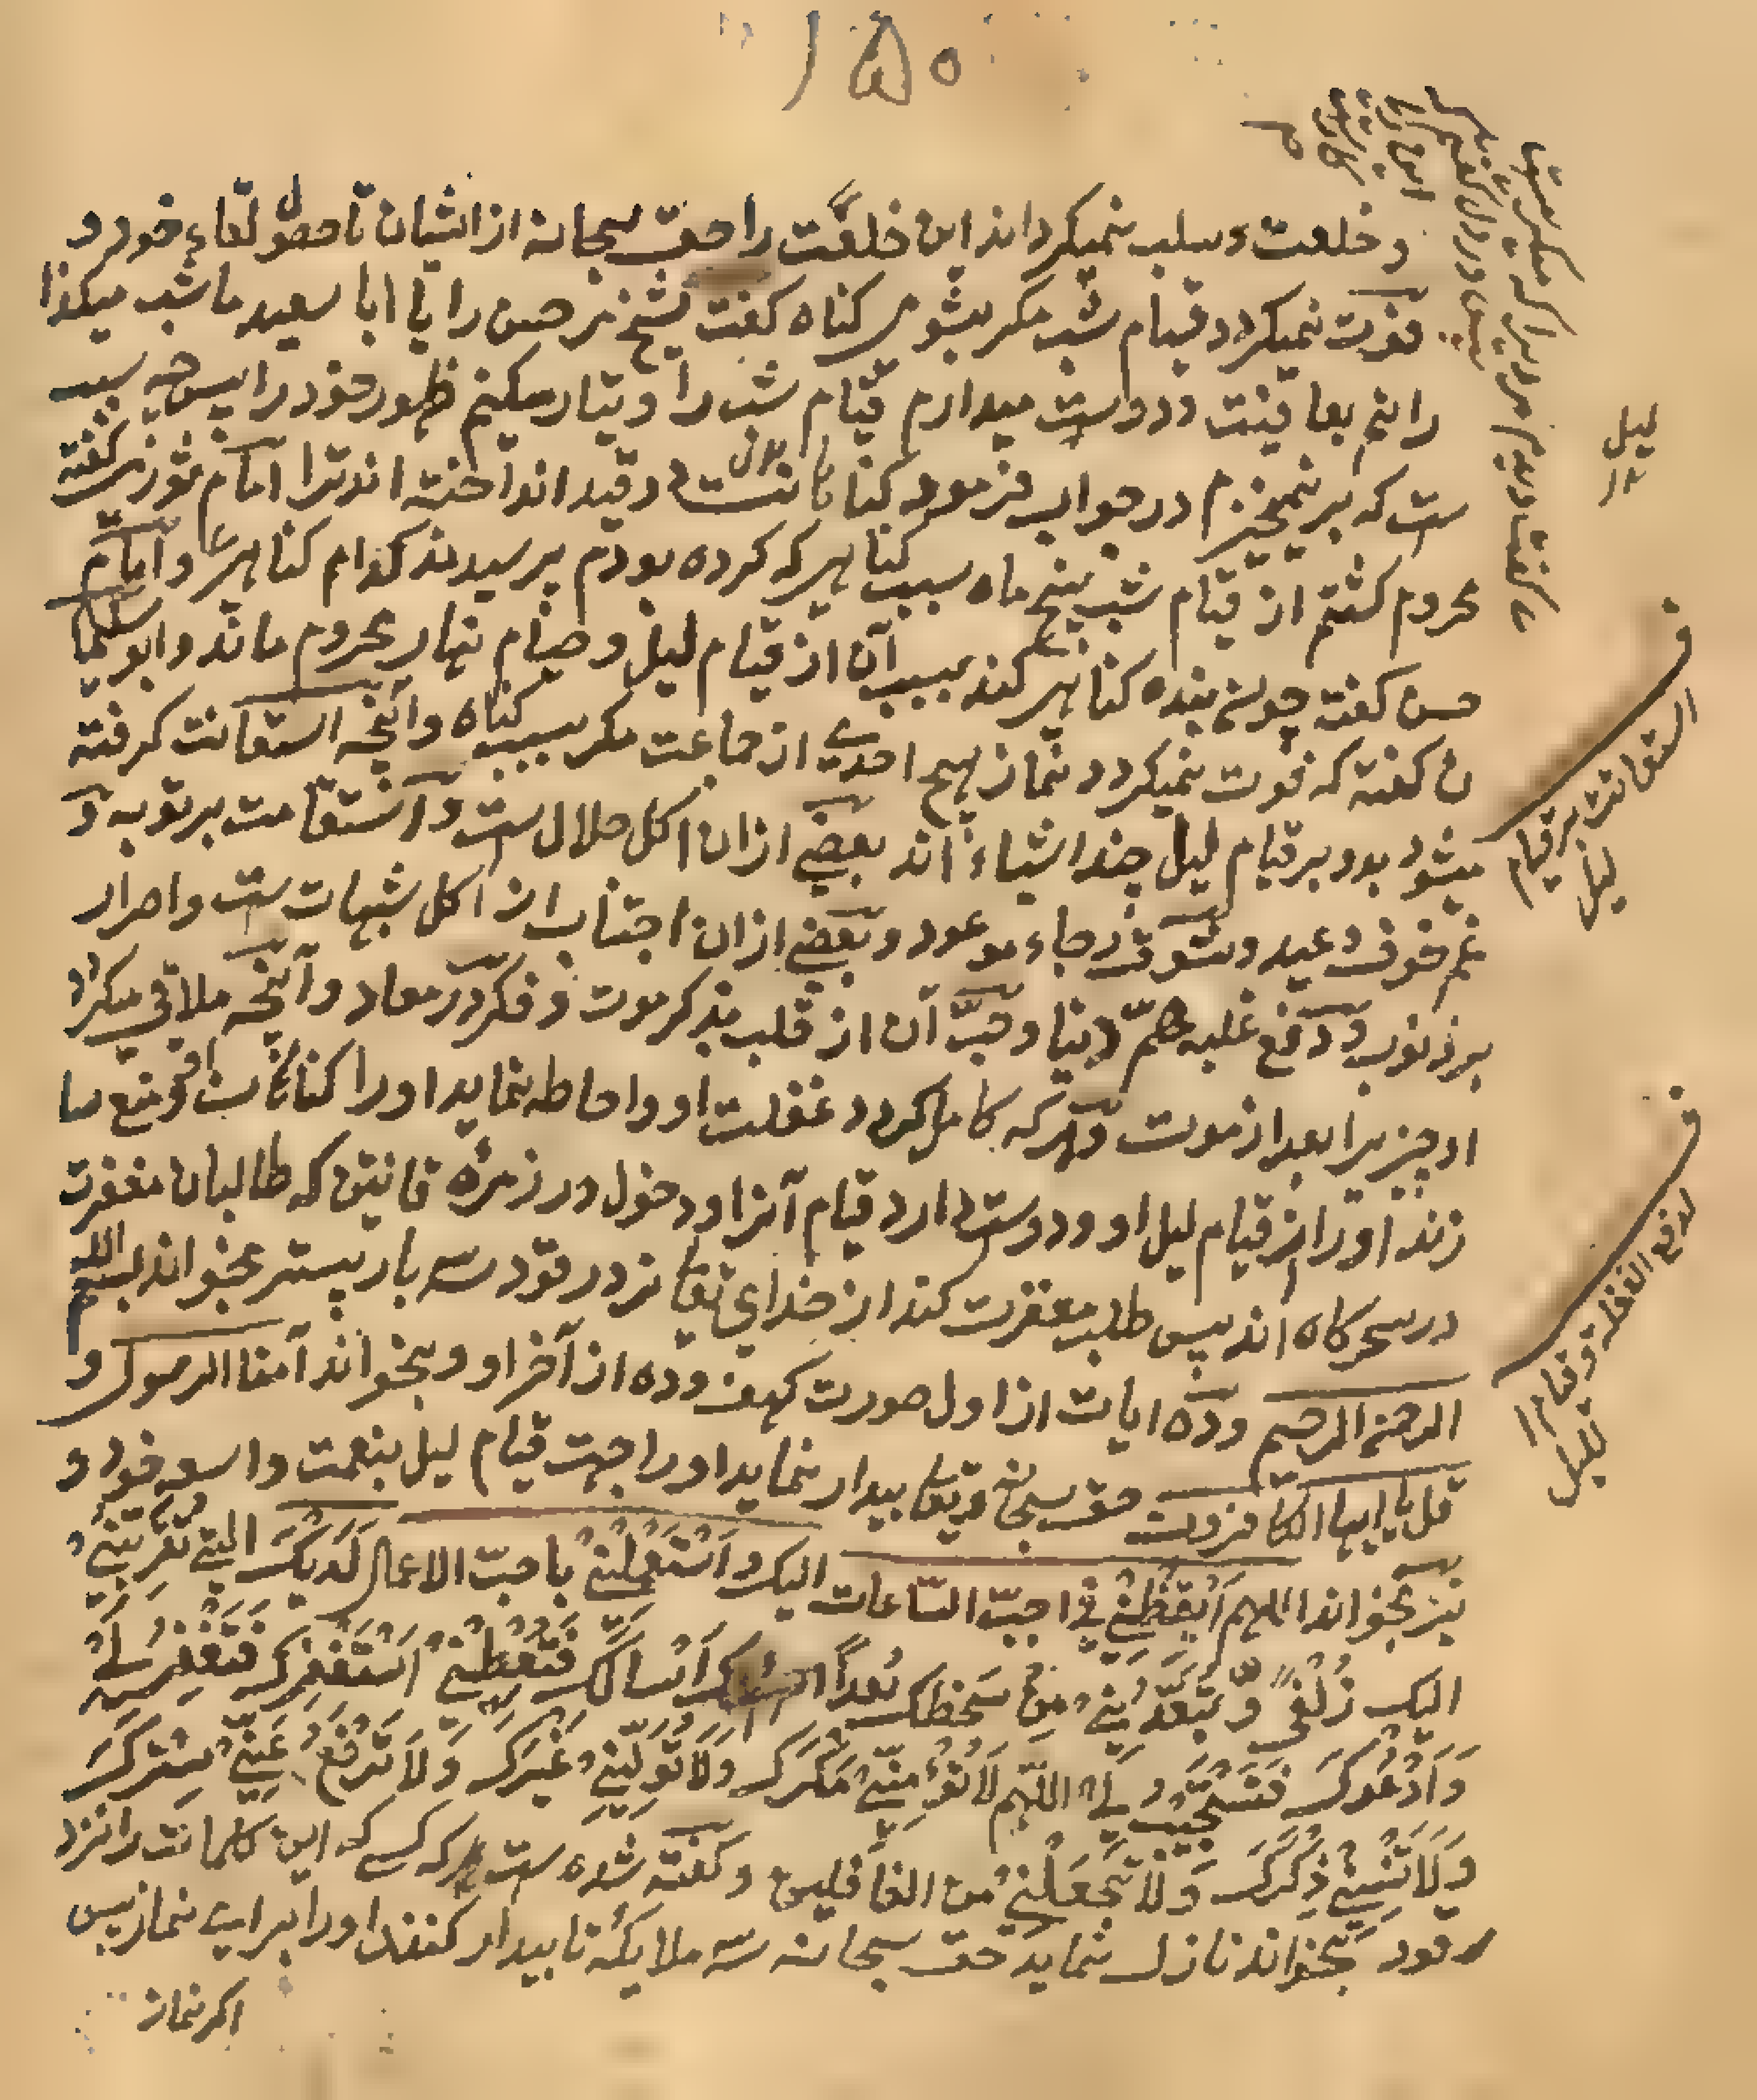 ١٥٠
و خلعت و سلب نمیکرداند این خلعت را حق سبحانه از ایشان تا حصول لقاء خود و
فوت نمیکردد قیام شب مکر بشومی کناه کفت شیخ مر حسن را یا ابا سعید ما شب میکذا
رانیم بعافیت و دوست میدارم قیام شب را و تیار میکنم طهور خود را پس چه سبب
ست که بر نمیخیزم در جواب فرمود کناهانت در قید انداخته اند ترا امام ثوری کفته
محروم کشتم از قیام شب پنج ماه بسبب کناهی که کرده بودم پرسیدند کدام کناهی و امام
حسن کفته چون بنده کناهی کند بسبب آن از قیام لیل و صیام نهار محروم ماند و ابو سلیما
ن کفته که فوت نمیکردد نماز هیچ احدی از جماعت مکر بسبب کناه و آنچه استعانت کرفته
میشود بدو بر قیام لیل چند اشیاء اند بعضی ازان اکل حلال ست و استقامت بر توبه و
غم خوف وعید و شوق رجاء موعود و بعضی ازان اجتناب از اکل شبهات ست و اصرار
بر ذنوب و دفع غلبه هم دنیا و حب آن از قلب بذکر موت و فکر در معاد و آنچه ملاقی میکردد
او چیز یرا بعد از موت و هر که کامل کردد غفلت او و احاطه نماید او را کناهانش او منع سا
زند او را از قیام لیل او و دوست دارد قیام آنرا و دخول در زمره قانتین که طالبان مغفرت
در سحرکاه اند پس طلب مغفرت کند از خدای تعا نزد رقود سه بار پستر بخواند بسم الله
الرحمن الرحیم و ده ایات از اول صورت کهف و ده از آخر او و بخواند آمنا الرسول و
قل یا ایها الکافرون حق سبحانه و تعا بیدار نماید او را جهت قیام لیل بنعمت واسعه خود و
نیز بخواند اللهم اَیْقِظْنِیْ فی احبّ السّاعات الیک و اَسْتَعْمِلْنِیْ باحبّ الاعمال لَدَیْکَ الّتی تُقَرِّبُنِیْ
الیک زُلْفٰی وَّ تُبَعِّدُنِیْ مِنْ سَخَطِکَ بُعْداً اَسْاَلُکَ فَتُعْطِیَنِیْ اَسْتَغْفِرُکَ فَتَغْفِرُ لِیْ
وَ اَدْعُوْکَ فَتَسْتَجِیْبُ لِیْ اللّٰهم لَا تُؤْمِنِّیْ مَکْرَکَ وَ لَا تُوَلِّنِیْ غَیْرَکَ وَ لَا تَرْفَعْ عَنِّیْ سِتْرَکَ
وَ لَا تُنْسِنِیْ ذِکْرَکَ وَ لَا تَجْعَلْنِیْ من الغافلین و کفته شده ست هر که کسے که این کلمات را نزد
رقود بخواند نازل نماید حق سبحانه سه ملایکه تا بیدار کنند او را برای نماز پس
اکر نماز
لیل
١٢
ف
استعانت بر قیام
لیل
ف
لدفع الغفلة و قیام
للیل